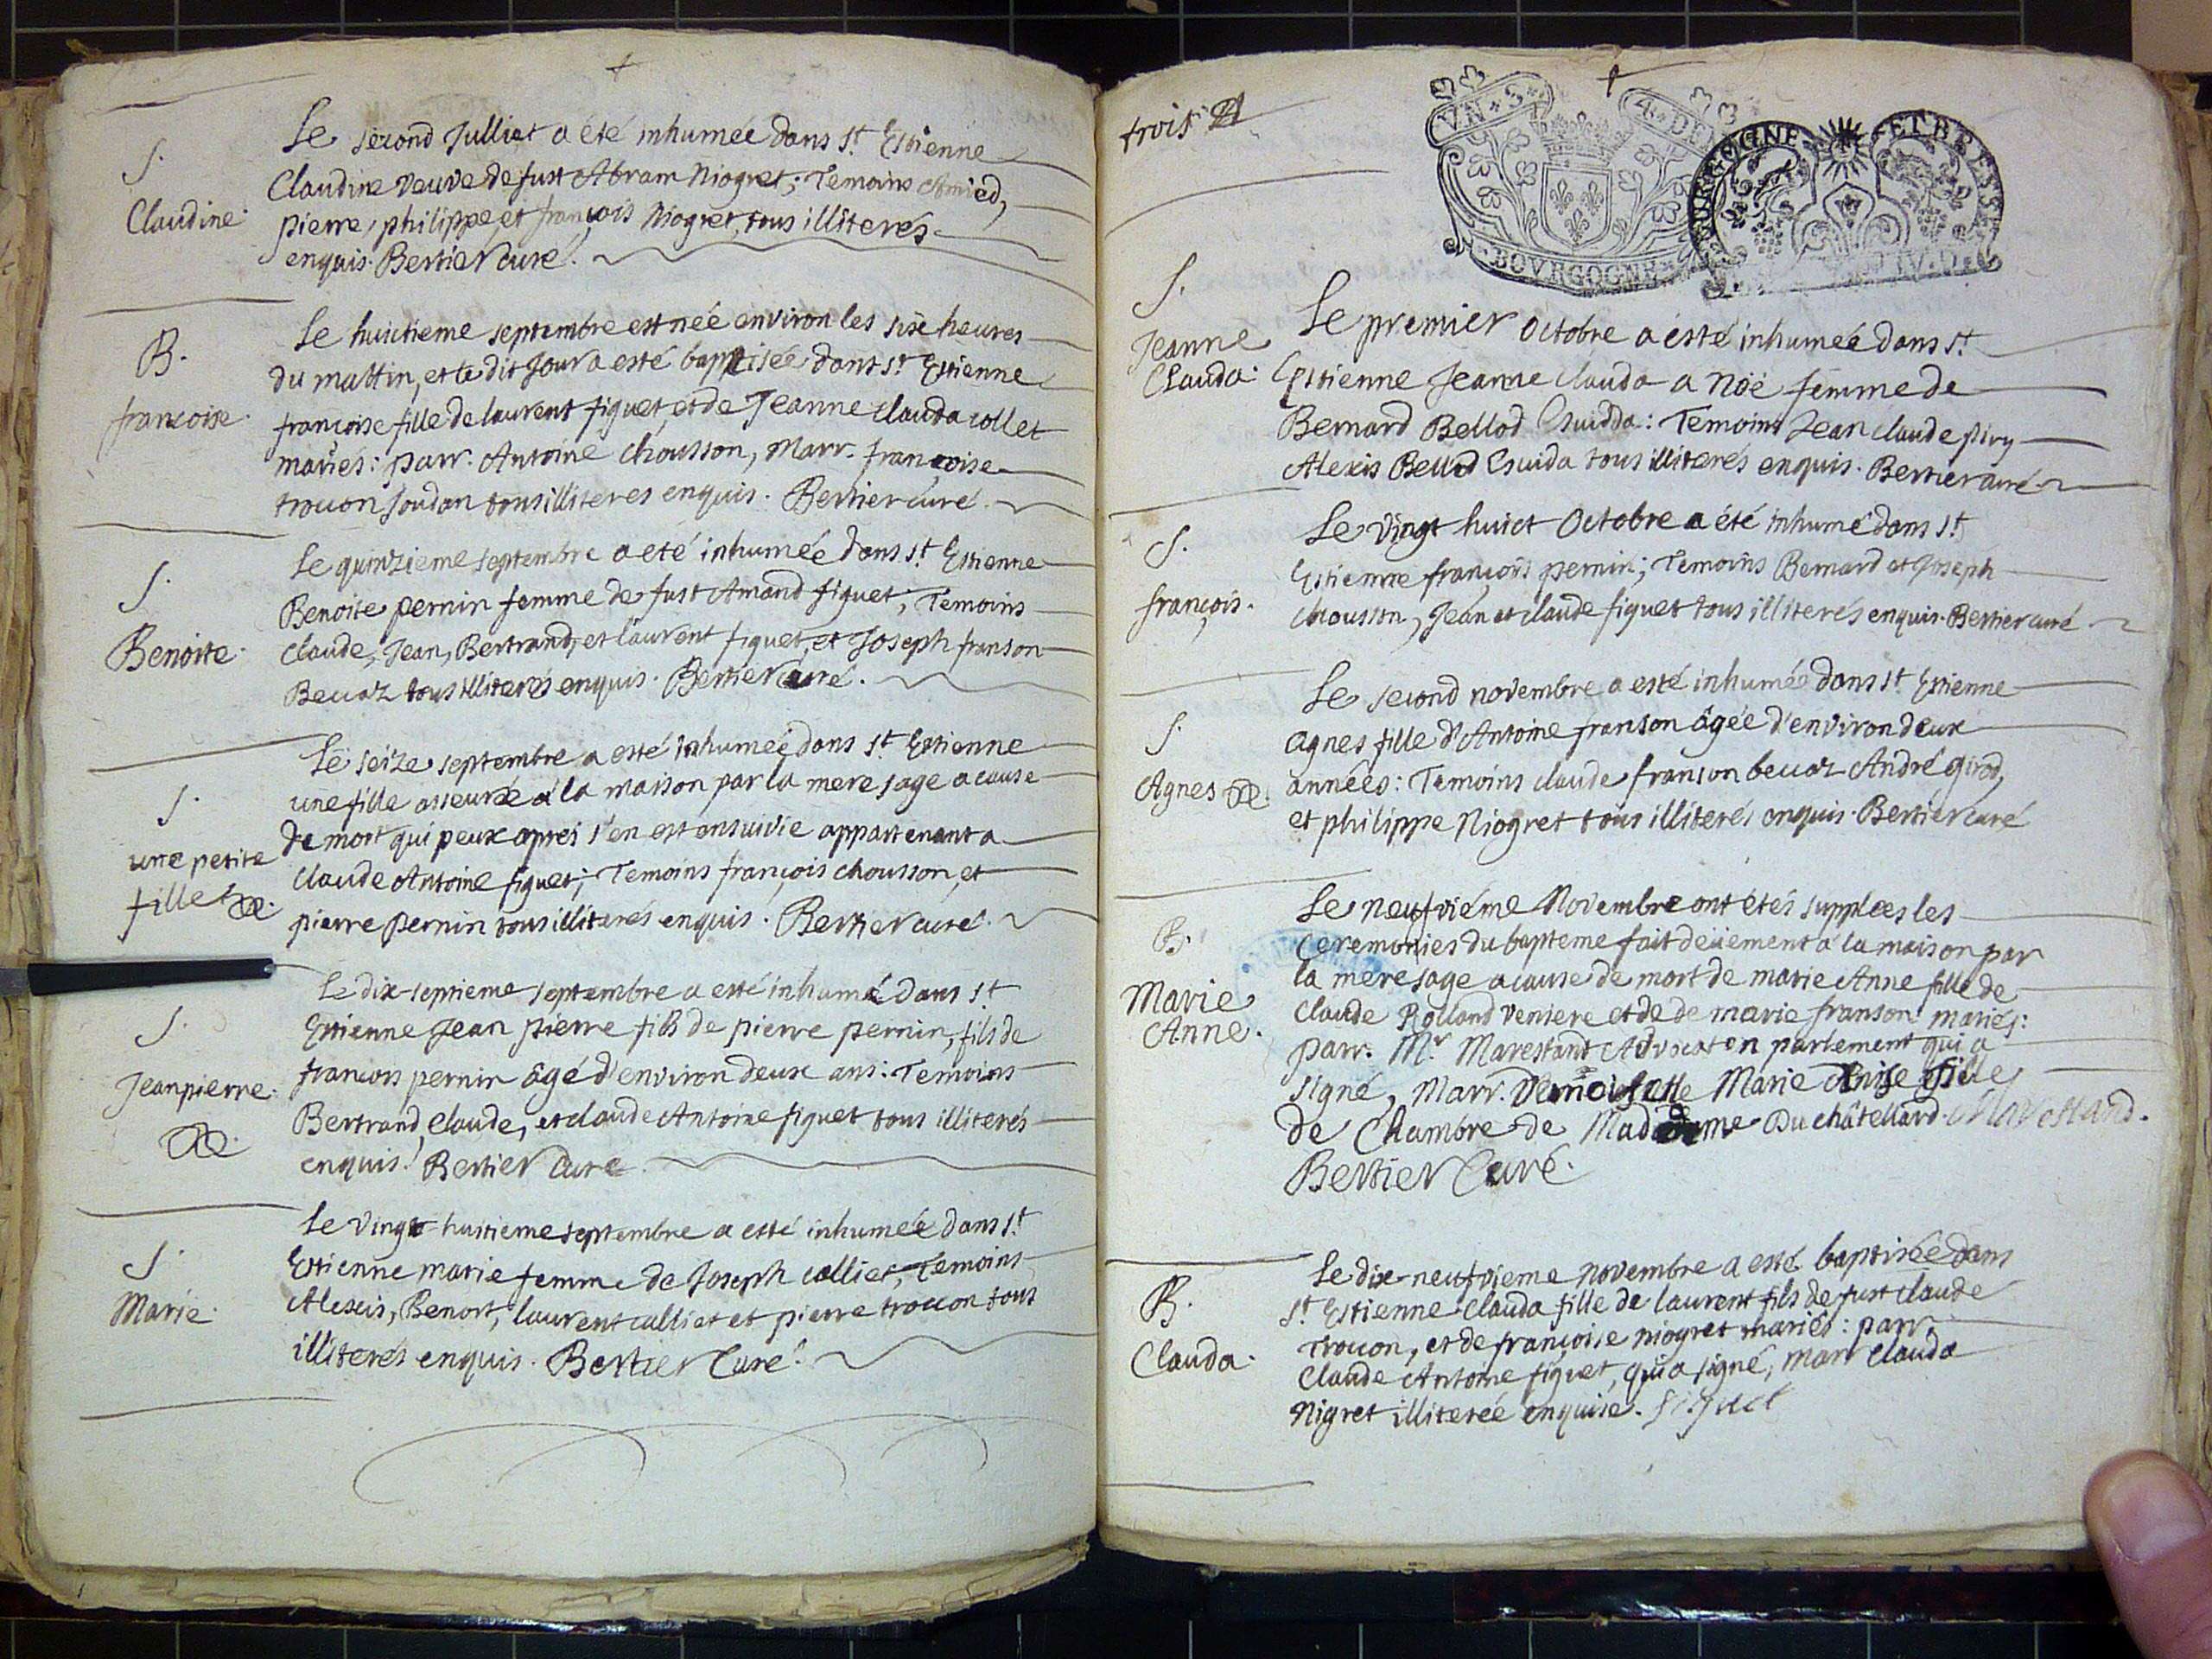 S.
Claudine.
Le second Julliet a été inhumée dans St. Estienne
Claudine veuve de fust Abram Niogret; Temoins Amied,
pierre, philippe, et françois Niogret, tous illiterés
enquis. Bertier curé.
B.
françoise.
Le huictieme septembre est née environ les sise heures
du mattin, et le dit Jour a esté baptisée dans st Estienne
françoise fille de laurent figuet, et de Jeanne clauda collet
mariés: parr. Antoine chousson, Marr. françoise
trocon soudan tous illiteres enquis. Bertier curé.
S.
Benoite.
Le quinzieme septembre a eté inhumée dans st. Estienne
Benoite pernin femme de fust Amand figuet; Temoins
claude, Jean, Bertrand, et laurent figuet, et Joseph franson
Beuaz tous illiterés enquis. Bertier curé.
S.
une petite
fille
Le seize septembre a esté inhumée dans st. Estienne
une fille asseurée a la maison par la mere sage a cause
de mort qui peux apres s'en est ensuivie appartenant a
claude Antoine figuet; Temoins françois chousson, et
pierre pernin tous illiterés enquis. Bertier curé.
S.
Jeanpierre.
Le dix-septieme septembre a esté inhumé dans st
Estienne Jean pierre fils de pierre pernin, fils de
françois pernin âgé d'environ deux ans: Temoins
Bertrand, claude, et claude Antoine figuet tous illiterés
enquis. Bertier Curé
S.
Marie.
Le vingt-huitieme septembre a esté inhumée dans st.
Estienne marie femme de Joseph colliet, Temoins
Alexis, Benoit, laurent culliet et pierre trocon tous
illiterés enquis. Bertier Curé.
trois
VN S
4 DEN
BOVRGOGNE
BOURGOGNE ET BRESSE
S.
Jeanne
Clauda.
Le premier octobre a esté inhumée dans st.
Estienne Jeanne clauda a Noë femme de
Bernard Bellod Guidda: Temoins Jean claude piry
Alexis Bellod Guida tous illiterés enquis. Bertier curé
S.
françois.
Le vingt huict Octobre a été inhumé dans st.
Estienne françois pernin; Temoins Bernard et Joseph
chousson, Jean et claude figuet tous illiterés enquis. Bertier curé
S.
Agnes
Le second novembre a esté inhumée dans st. Estienne
Agnes fille d'Antoine franson âgée d'environ deux
années: Temoins claude franson beuaz André girod,
et philippe Niogret tous illiterés enquis. Bertier curé
B.
Marie
Anne.
Le neufviéme Novembre ont étés supplees les
Ceremonies du bapteme fait deüement a la maison par
la mere sage a cause de mort de marie Anne fille de
claude Rolland veniere et de de marie franson mariés:
parr. Mr. Marestant Advocat en parlement qui a
signé, Marr. Demoiselle Marie fille
de Chambre de Madame Du châtellard. Marestand.
Bertier Curé.
B.
Clauda.
Le dix-neufvieme novembre a esté baptisée dans
st. Estienne clauda fille de laurent fils de fust claude
Trocon, et de françoise niogret mariés: parr.
Claude Antoine figuet, qui a signé, marr clauda
Nigret illiterée enquise. figuet